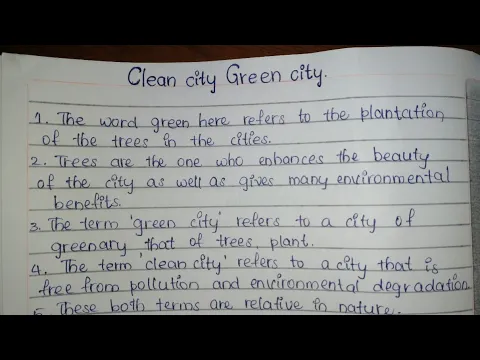 Clean city Green city.
1. The word green here refers to the plantation
of the trees in the cities.
2. Trees are the one who enhances the beauty
of the city as well as gives many environmental
benefits.
3. The term 'green city' refers to a city of
greenary that of trees, plant.
4. The term 'clean city' refers to a city that is
free from pollution and environmental degradation
5. These both terms are relative in nature.